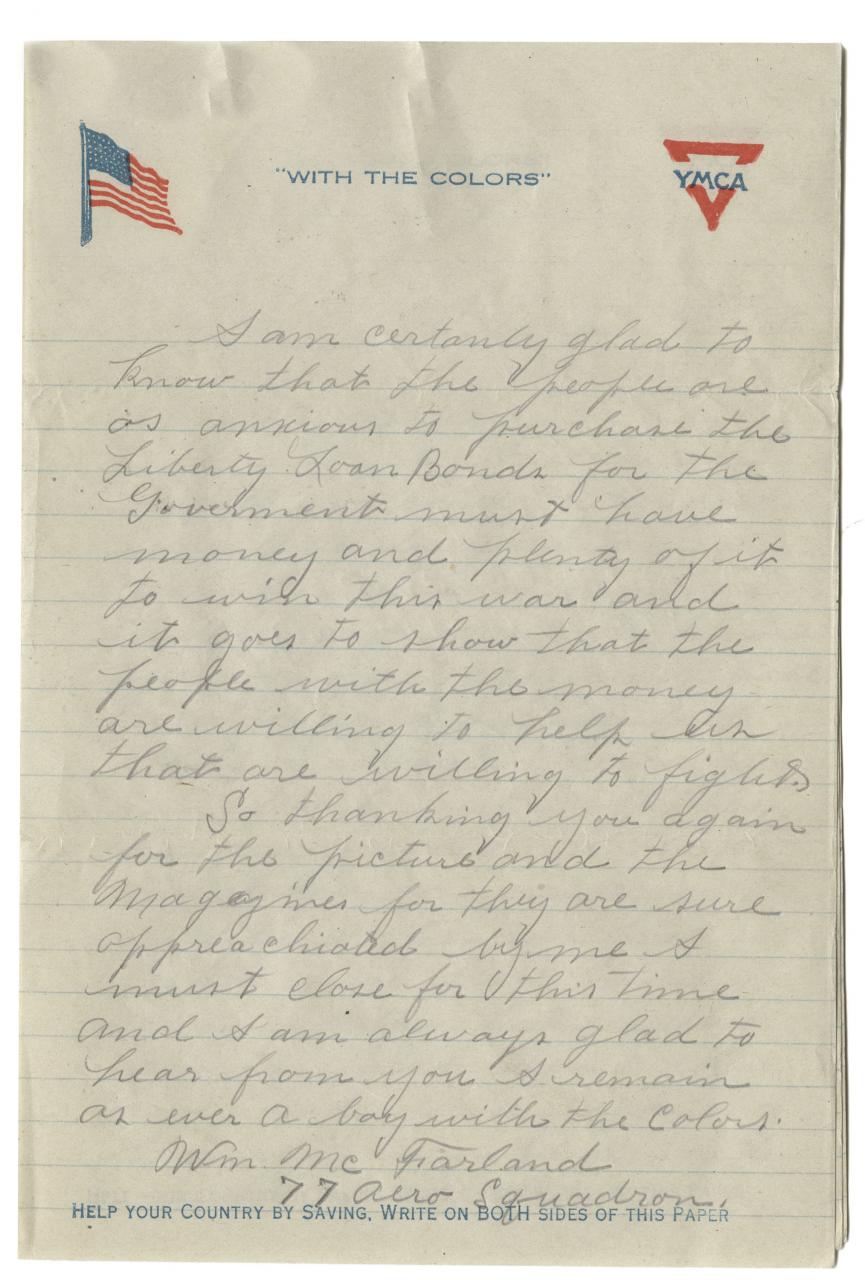 "WITH THE COLORS"
YMCA
I am certanly glad to
know that the people are
as anxious to purchase the
Liberty Loan Bonds for the
Goverment must have
money and plenty of it
to win this war and
it goes to show that the
people with the money
are willing to help us
that are willing to fight.
So thanking you again
for the picture and the
Magazines for they are sure
appreachiated by me I
must close for this time
and I am always glad to
hear from you I remain
as ever a boy with the Colors.
Wm. Mc Farland
77 Aero Squadron.
HELP YOUR COUNTRY BY SAVING, WRITE ON BOTH SIDES OF THIS PAPER